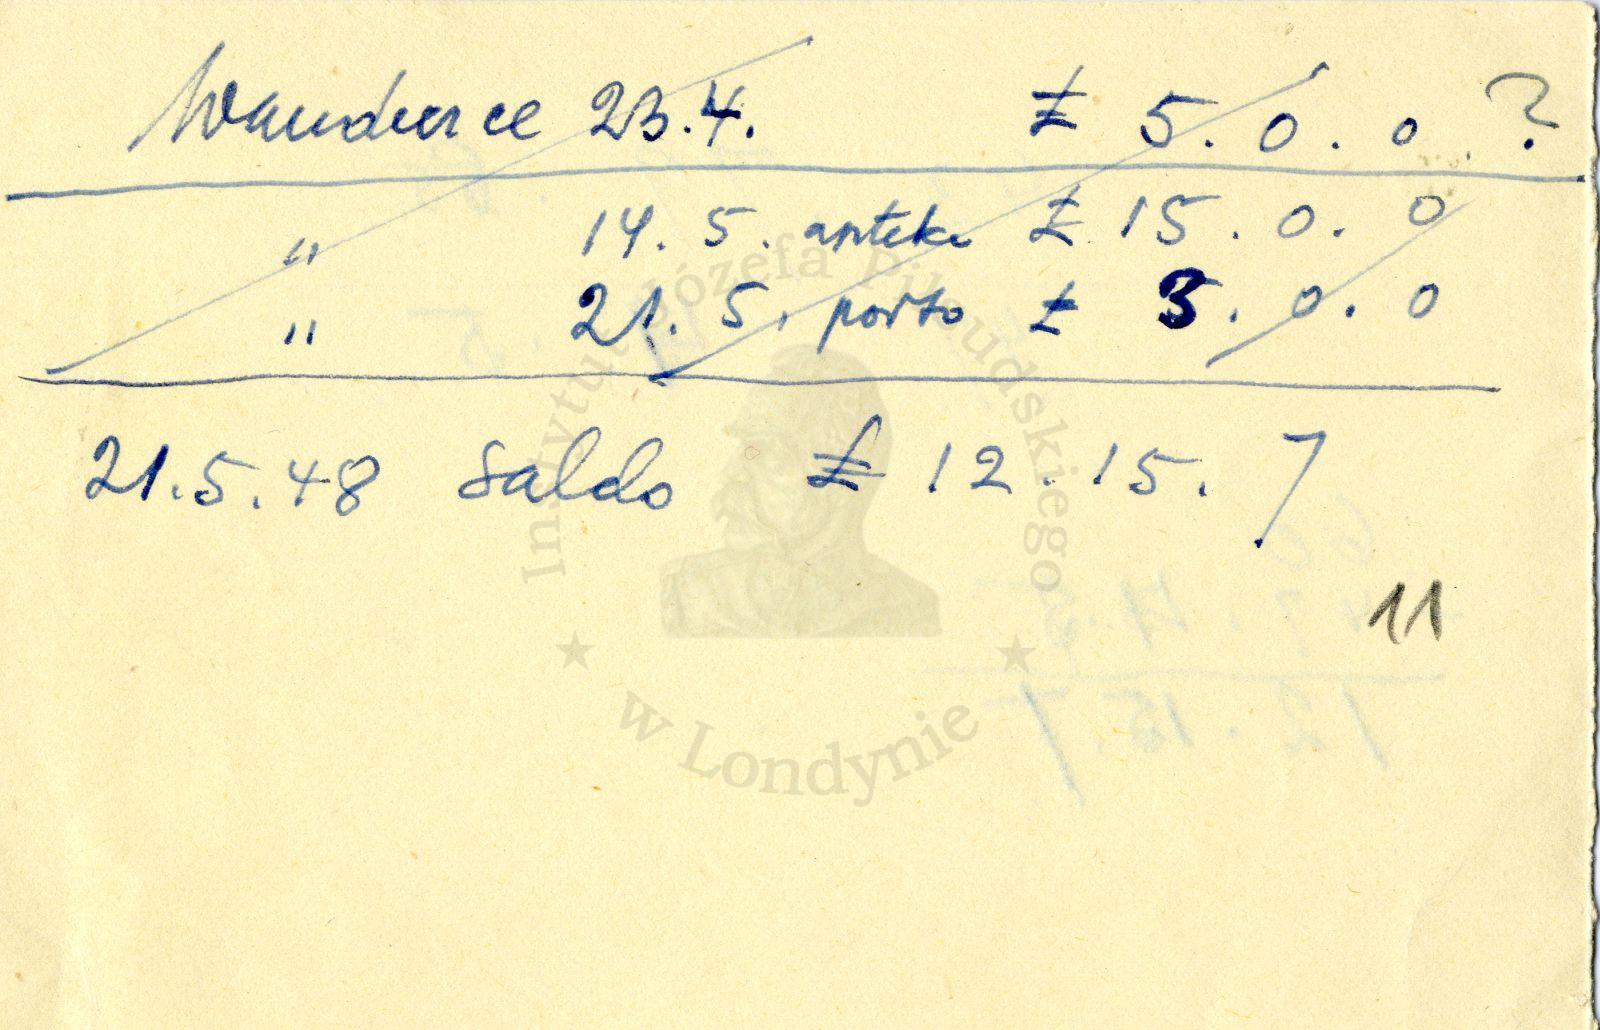 23.4. £ 5.0.0 ?
" 14.5. apteka £ 15.0.0
" 21.5. porto £ 3.0.0
21.5.48 Saldo £ 12.15.7
11
Instytut Józefa Piłsudskiego
w Londynie